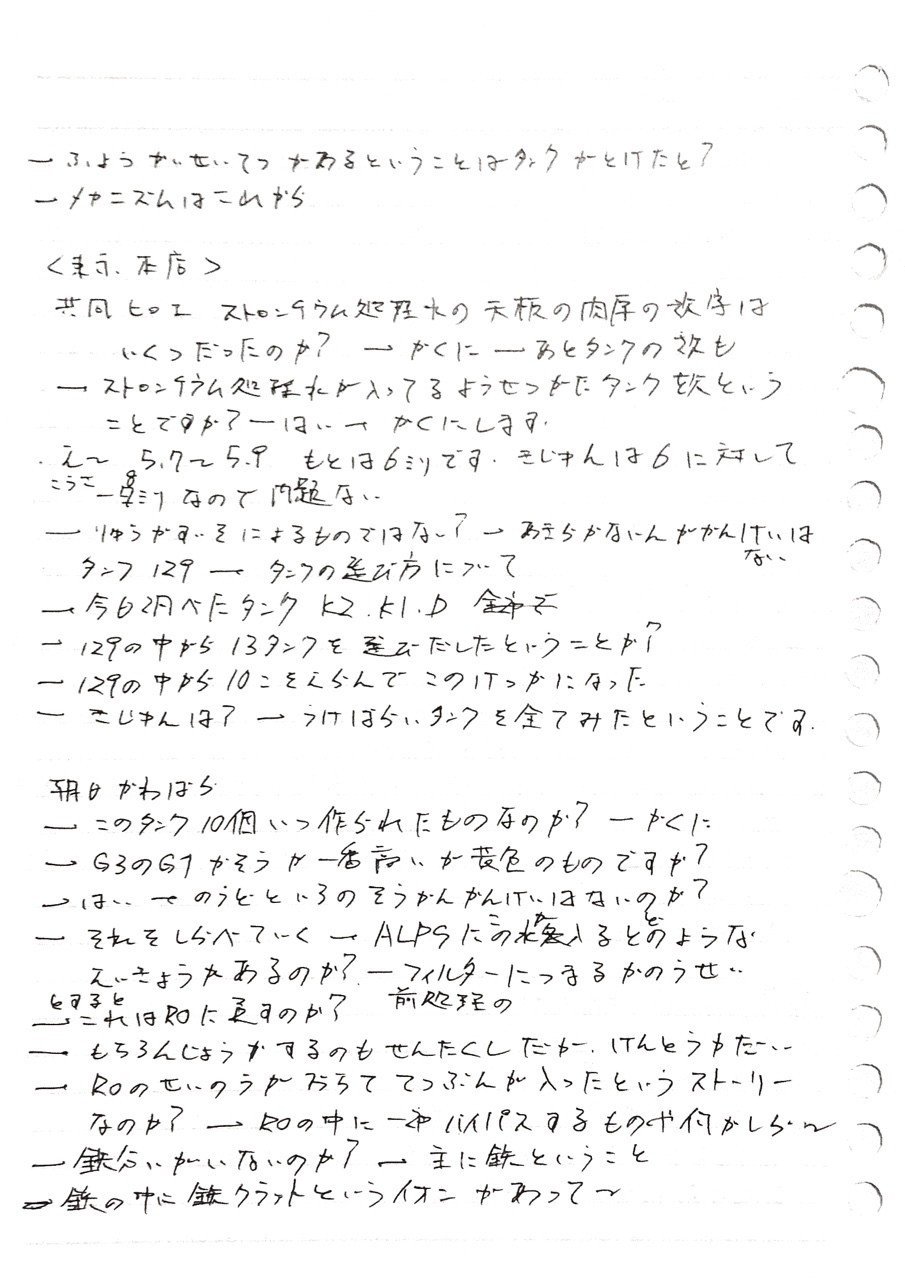 → ふようかいせいてつがあるということはタンクがとけたと?
→ メカニズムはこれから
<東京、本店>
共同ヒロエ ストロンチウム処理水の天板の肉厚の数字は
いくつだったのか? → かくに → あとタンクの数も
→ ストロンチウム処理水が入ってるようせつがたタンク数という
ことですか? → はい → かくにします.
.えー 5.7〜5.9 もとは6ミリです. きじゅんは6に対して
こうご 8
一ミリなので問題ない
→ りゅうかすいそによるものではない? → あきらかないんがかんけいは
ない
タンク 129 → タンクの選び方について
→ 今日調べたタンク K2.K1.D
→ 129の中から13タンクを選びだしたということか?
→ 129の中から10こをえらんでこのけっかになった
→ きじゅんは? → うけばらいタンクを全てみたということです.
朝日かわはら
→ このタンク10個いつ作られたものなのか? → かくに
→ G3のG1がそうが一番高いが黄色のものですか?
→ はい → のうどといろのそうかんかんけいはないのか?
→ それをしらべていく → ALPSにこの水が入るとどのような
えいきょうがあるのか? → フィルターにつまるかのうせい
とすると 前処理の
→ これはROに戻すのか?
→ もちろんじょうかするのもせんたくしだが、けんとうかだい
→ ROのせいのうがおちててつぶんが入ったというストーリー
なのか? → ROの中に一部バイパスするものや何かしら〜
→ 鉄分いがいないのか? → 主に鉄ということ
→ 鉄の中に鉄クラットというイオンがあって〜